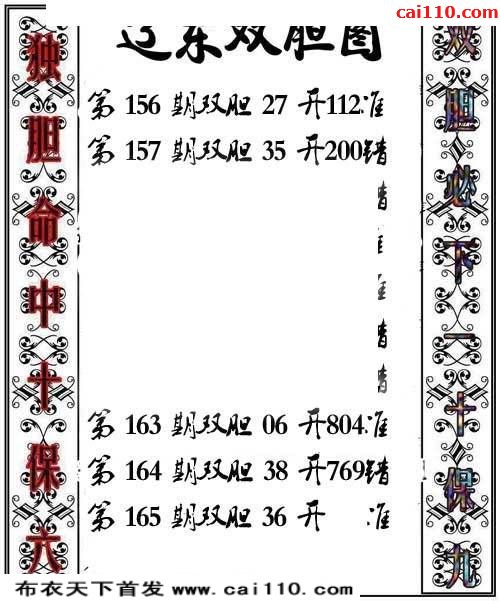 彩吧
cai110.com
辽东双胆图
独胆命中十保六
第 156 期双胆 27 开112准
第 157 期双胆 35 开200错
错
准
准
错
错
第 163 期双胆 06 开804准
第 164 期双胆 38 开769错
第 165 期双胆 36 开 准
双胆必下一十保九
布衣天下首发 www.cai110.com